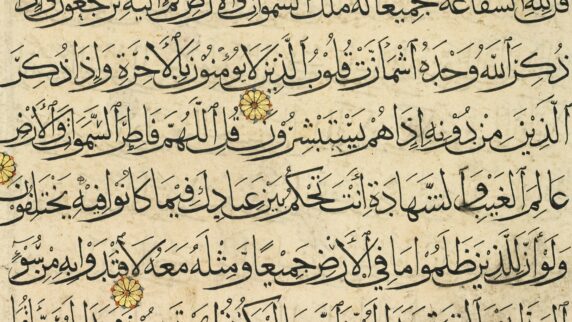 قُل لِّلَّهِ ٱلشَّفَاعَةُ جَمِيعًا لَهُ مُلْكُ ٱلسَّمَوَاتِ وَٱلْأَرْضِ ثُمَّ إِلَيْهِ تُرْجَعُونَ وَإِذَا
ذُكِرَ ٱللَّهُ وَحْدَهُ ٱشْمَأَزَّتْ قُلُوبُ ٱلَّذِينَ لَا يُؤْمِنُونَ بِٱلْأَخِرَةِ وَإِذَا ذُكِرَ
ٱلَّذِينَ مِنْ دُونِهِ إِذَا هُمْ يَسْتَبْشِرُونَ قُلِ ٱللَّهُمَّ فَاطِرَ ٱلسَّمَوَاتِ وَٱلْأَرْضِ
عَالِمَ ٱلْغَيْبِ وَٱلشَّهَادَةِ أَنْتَ تَحْكُمُ بَيْنَ عِبَادِكَ فِيمَا كَانُوا فِيهِ يَخْتَلِفُونَ
وَلَوْ أَنَّ لِلَّذِينَ ظَلَمُوا مَا فِي ٱلْأَرْضِ جَمِيعًا وَمِثْلَهُ مَعَهُ لَافْتَدَوْا بِهِ مِنْ سُوءِ